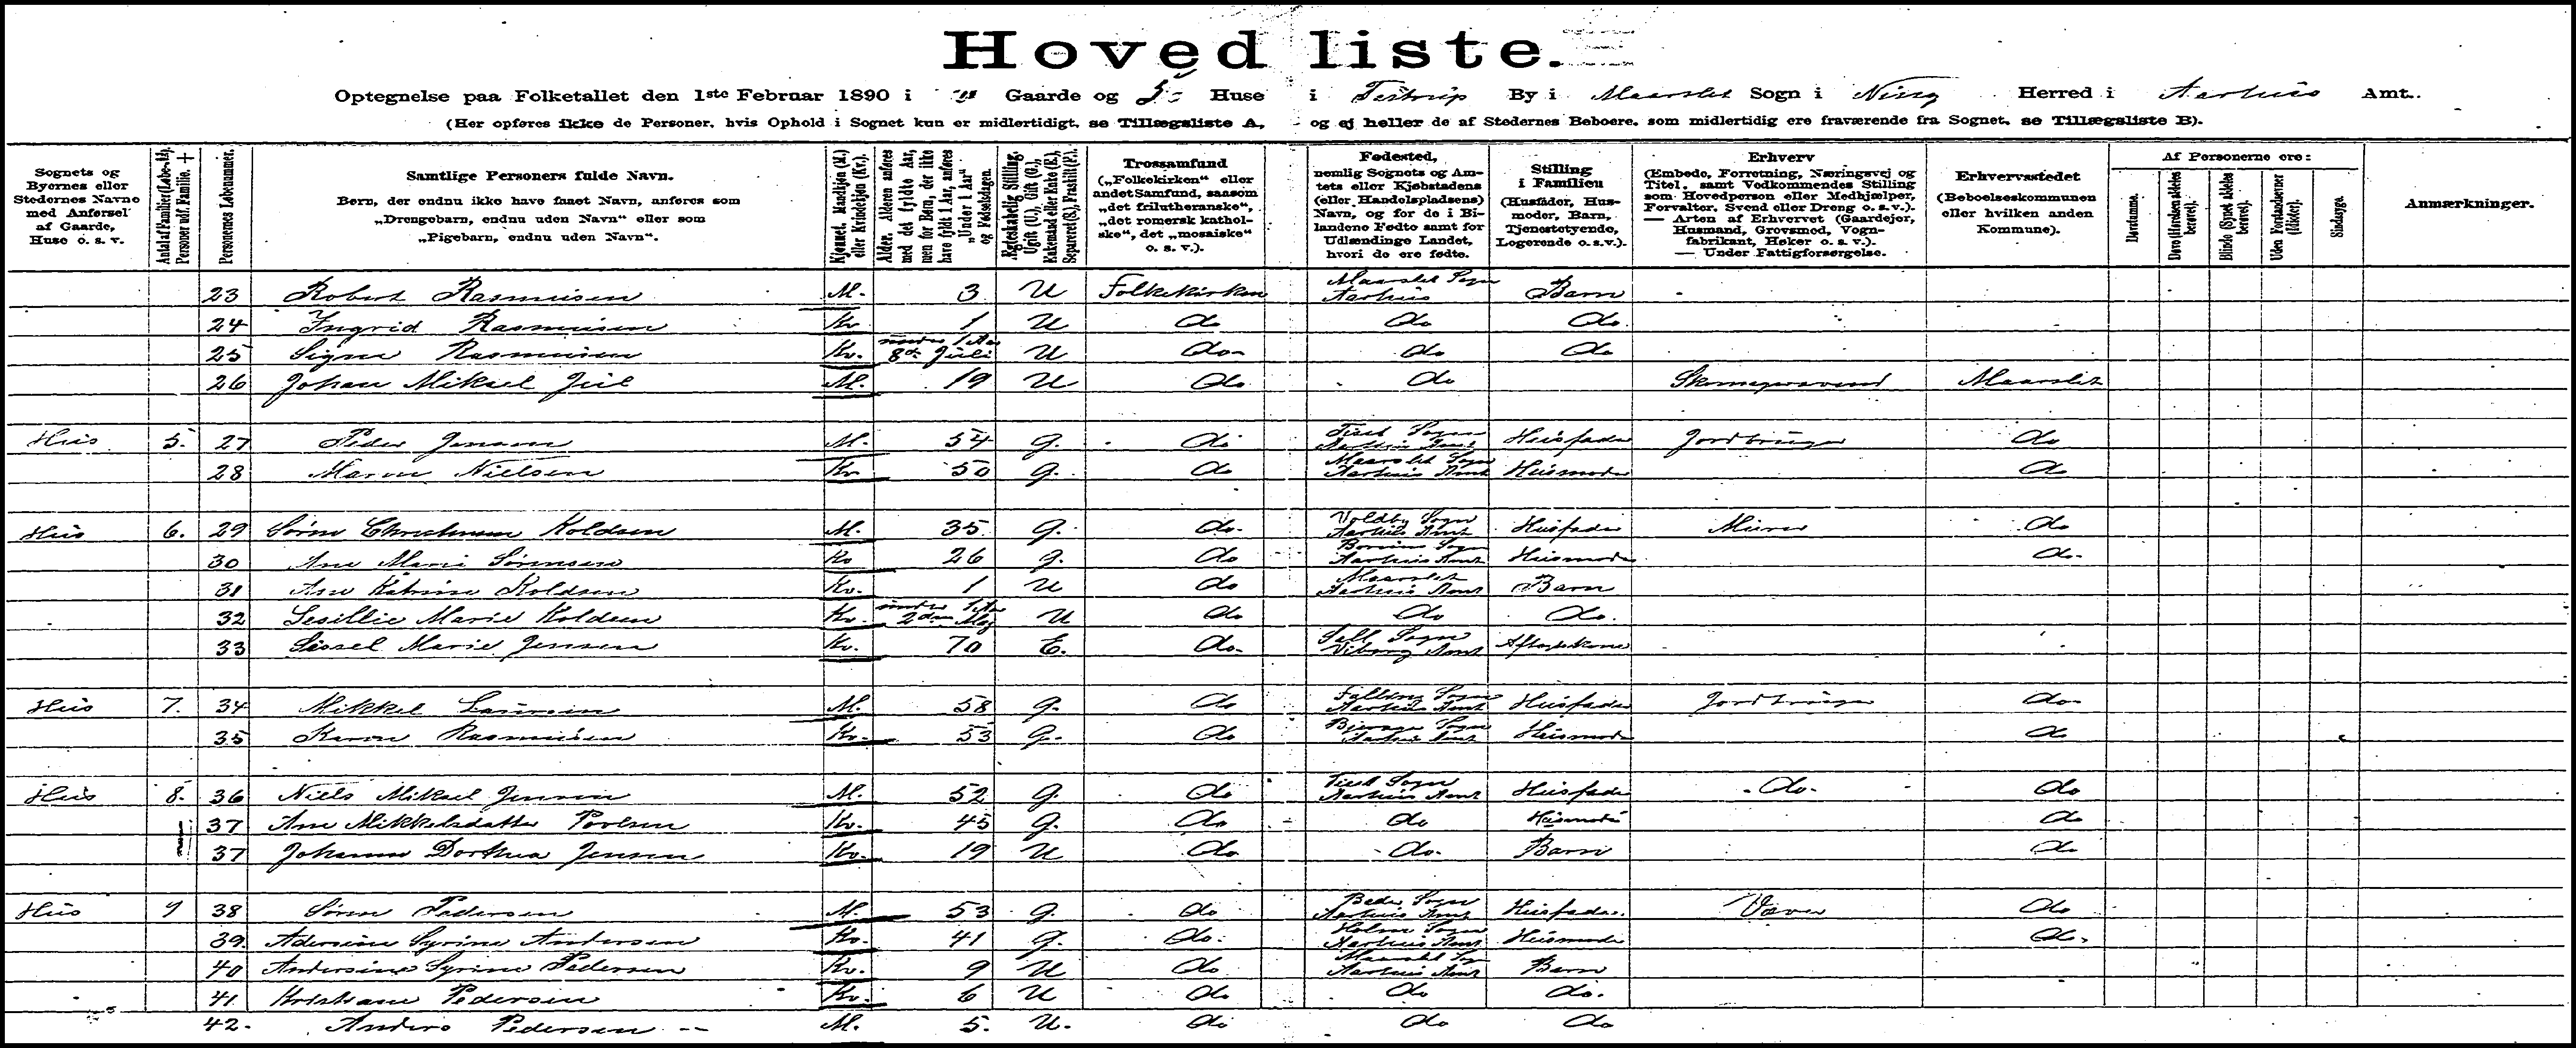 Hovedliste.
Optegnelse paa Folketallet den 1ste Februar 1890 i Gaarde og 5 Huse i Testrup By i Maarslet Sogn i Ning Herred i Aarhus Amt.
(Her opføres ikke de Personer, hvis Ophold i Sognet kun er midlertidigt, se Tillægsliste A, og ej heller de af Stedernes Beboere, som midlertidig ere fraværende fra Sognet, se Tillægsliste B).
Sognets og Byernes eller Stedernes Navne med Anførsel af Gaarde, Huse o. s. v.
Antal af Familier (Løbe-№). Personer udf. Familie. +
Personernes Løbenumer.
Samtlige Personers fulde Navn.
Børn, der endnu ikke have faaet Navn, anføres som „Drengebarn, endnu uden Navn“ eller som „Pigebarn, endnu uden Navn“.
Kjønnet. Mandkjøn (M.) eller Kvindekjøn (Kv.).
Alder. Alderen anføres med det fyldte Aar, men for Børn, der ikke have fyldt 1 Aar, anføres „Under 1 Aar“ og Fødselsdagen.
Ægteskabelig Stilling. Ugift (U.), Gift (G.), Enkemand eller Enke (E.), Separeret (S.), Fraskilt (F.).
Trossamfund („Folkekirken“ eller andet Samfund, saasom „det frilutheranske“, „det romersk katholske“, det „mosaiske“ o. s. v.).
Fødested, nemlig Sognets og Amtets eller Kjøbstadens (eller Handelspladsens) Navn, og for de i Bilandene Fødte samt for Udlændinge Landet, hvori de ere fødte.
Stilling i Familien (Husfader, Husmoder, Barn, Tjenestetyende, Logerende o. s. v.).
Erhverv (Embede, Forretning, Næringsvej og Titel, samt Vedkommendes Stilling som Hovedperson eller Medhjælper, Forvalter, Svend eller Dreng o. s. v.). — Arten af Erhvervet (Gaardejer, Husmand, Grovsmed, Vognfabrikant, Høker o. s. v.). — Under Fattigforsørgelse.
Erhvervsstedet (Beboelseskommunen eller hvilken anden Kommune).
Af Personerne ere:
Døvstumme.
Døve (Hørelsen aldeles berøvet).
Blinde (Synet aldeles berøvet).
Uden Forstandsevner (Idioter).
Sindssyge.
Anmærkninger.
23 Robert Rasmussen M. 3 U Folkekirken Maarslet Sogn Aarhus Barn
24 Ingrid Rasmussen Kv. 1 U do do do.
25 Signe Rasmussen Kv. under 1 Aar 8de Juli U do do do
26 Johan Mikael Juil M. 19 U do. do Skomagersvend Maarslet
Hus 5. 27 Peder Jensen M. 54 g. do Tiset Sogn Aarhus Amt Husfader Jordbruger do
28 Maren Nielsen Kv 50 g. do Maarslet Sogn Aarhus Amt Husmoder do
Hus 6. 29 Søren Christensen Koldsen M. 35 g. do. Voldby Sogn Aarhus Amt Husfader Murer do
30 Ane Marie Sørensen Kv 26 g. do Sogn Aarhus Amt Husmoder do.
31 Ane Katrine Koldsen Kv. 1 U do Maarslet Aarhus Amt Barn
32 Sesillie Marie Koldsen Kv. under 1 Aar 2den Maj U do do do.
33 Sissel Marie Jensen Kv. 70 E. do. Sall Sogn Viborg Amt Aftægtskone
Hus 7. 34 Mikkel Laursen M. 58 g. do Falling Sogn Aarhus Amt Husfader Jordbruger do.
35 Karen Rasmussen Kv. 53 g. do Sogn Aarhus Amt Husmoder do
Hus 8. 36 Niels Mikael Jensen M. 52 g. do Tiset Sogn Aarhus Amt Husfader do. do
37 Ane Mikkelsdatter Povlsen Kv. 45 g. do do Husmoder do
37 Johanne Dorthea Jensen Kv. 19 U do do. Barn do
Hus 9 38 Søren Pedersen M. 53 g. do Beder Sogn Aarhus Amt Husfader. Væver do
39. Syrine Andersen Kv. 41 g. do. Holme Sogn Aarhus Amt Husmoder do.
40 Andersine Syrine Pedersen Kv. 9 U do Maarslet Sogn Aarhus Amt Barn
41 Kristiane Pedersen Kv. 6 U do do do.
42. Anders Pedersen M. 5. U. do do do